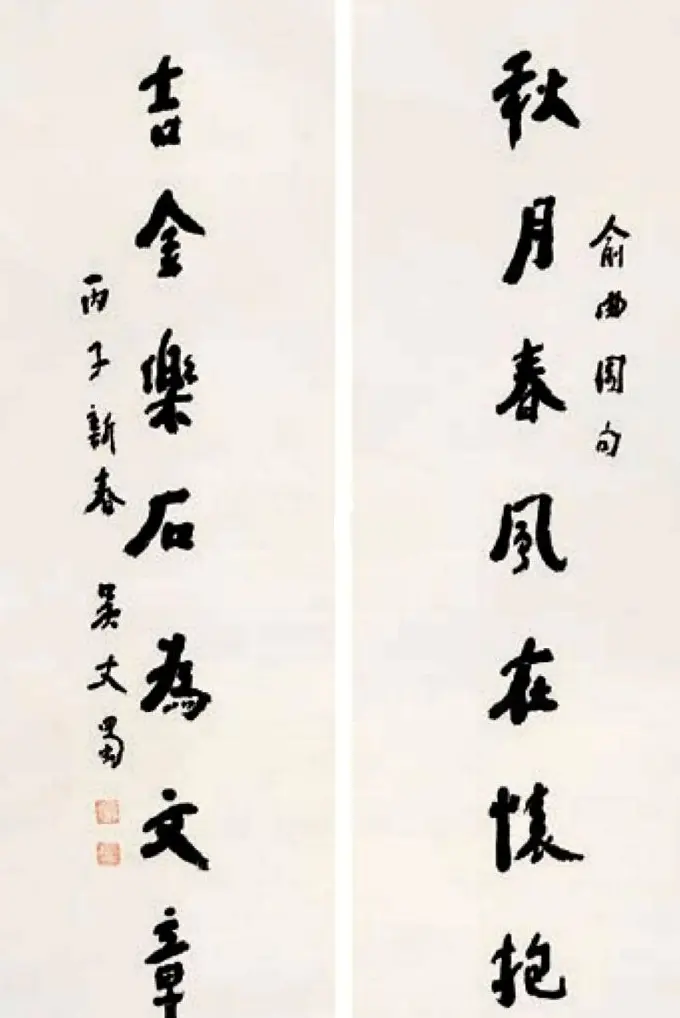 俞曲園句
秋月春風在懷抱
吉金樂石為文章
丙子新春 吳丈蜀